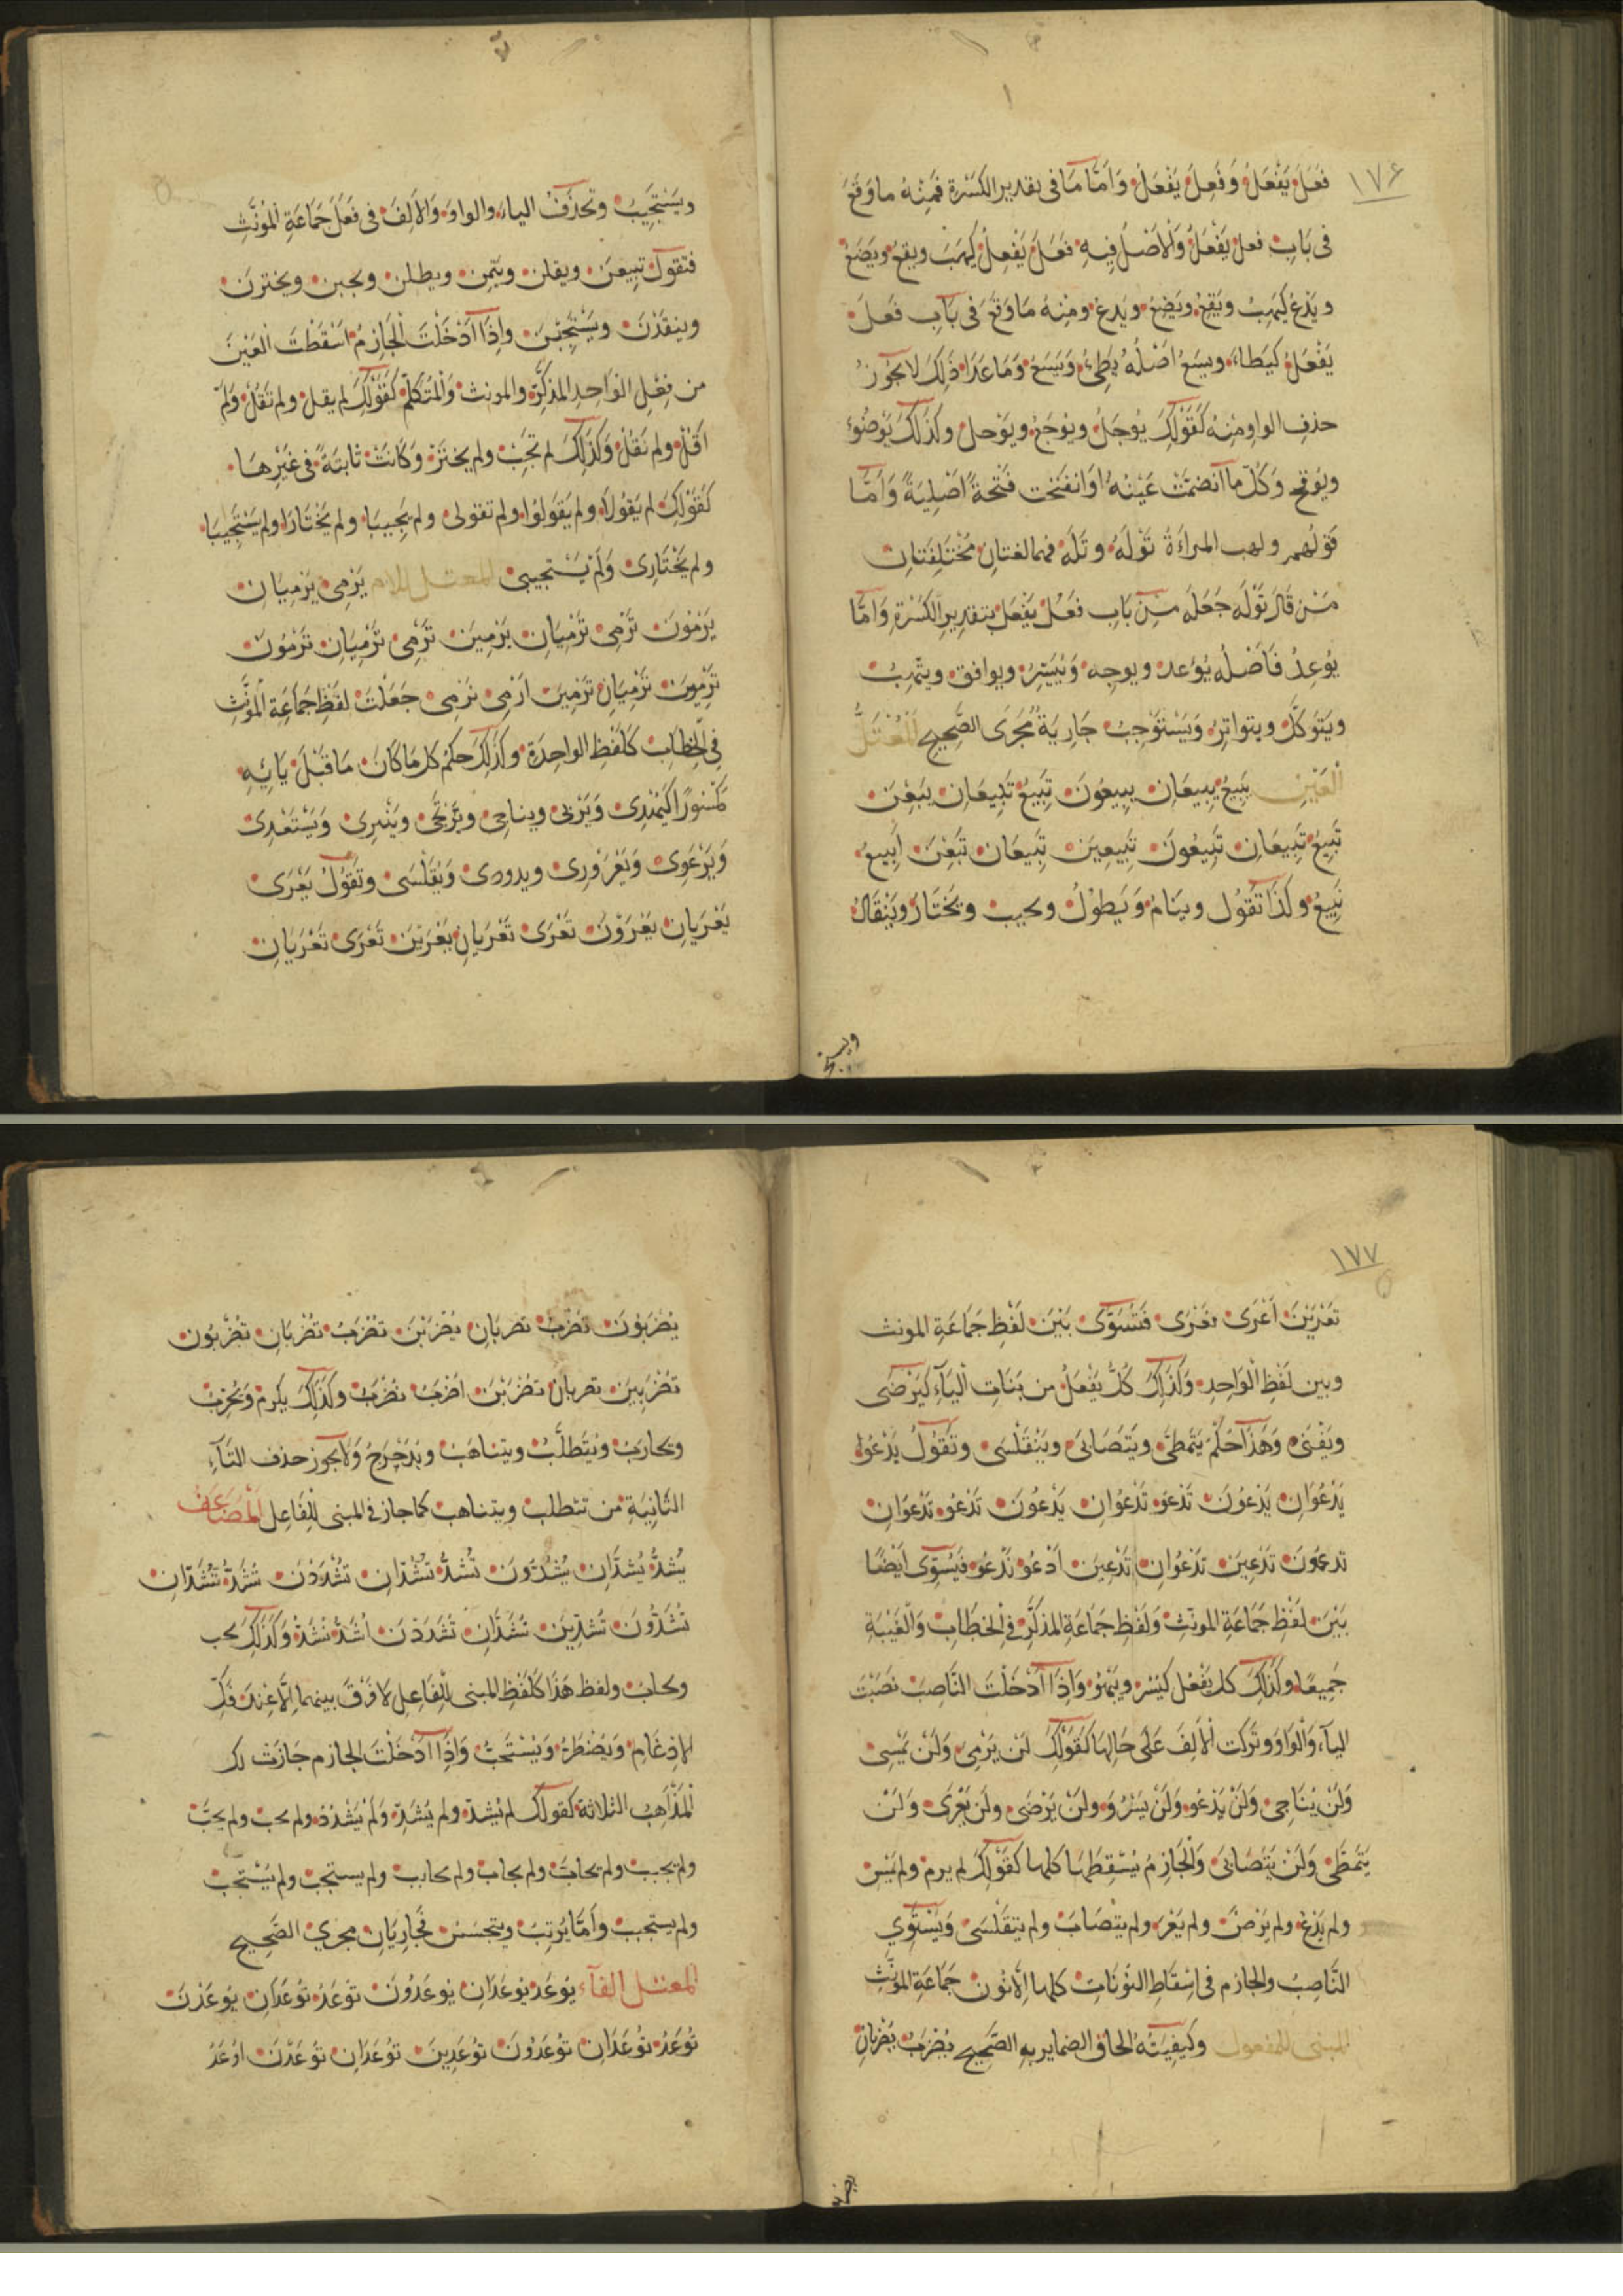 ١٧٦
فَعَلَ يَفْعَلُ وَفَعِلَ يَفْعَلُ وَاَمَّا مَا فى تقدير الكَسْرَة فَمِنْهُ ما وَقَعَ
فى بَابِ فعل يَفْعَلُ وَالْاَصْلُ فِيهِ فَعَلَ يَفْعِلُ كَيَهَبَ ويقع ويَضَعُ
ويَدَعُ كَيَهِبُ ويَقِعُ ويَضِعُ ويَدِعُ ومِنْهُ مَا وَقَعَ فى بَابِ فَعِلَ
يَفْعَلُ كَيَطاءُ ويسَعُ اصْلُهُ يَطِئُ وَيَسِعُ وَمَا عَدَا ذٰلِكَ لا يجُوزُ
حذف الواو مِنْهُ كَقَوْلِكَ يُوجَلُ ويوْجَعُ ويَوْحل وكَذٰلِكَ يَوْضُؤ
ويَوْقح وَكُلّ ما انْضمّتْ عَيْنُهُ اَوِ انفَتَحت فَتْحَةً اَصْلِيَةً وَاَمَّا
قَوْلُهم ولهب المرأةُ تَوْلَهُ وتَلَهُ فهما لغتانِ مُخْتَلِفَتَانِ
مَنْ قَالَ تَوْلَه جَعَلَه مِنْ بَابِ فَعَلَ يَفْعَلُ بتقديرِ الكَسْرَةِ وَاَمَّا
يُوعِدُ فَاَصْلُه يُؤَعد ويوجه وَيُيَسِّرُ ويوافق ويتّهِبُ
ويَتَوَكَّل ويتواتر وَيَسْتَوْجِبُ جَارِيَةٌ مُجْرَى الصَّحِيحِ اَلْمُعْتَلُّ
الْعَيْنِ يَبِيعُ يبِيعَانِ يبِيعُونَ تَبِيعُ تَبِيعَانِ يَبِعْنَ
تَبِيعُ تَبِيعَانِ تَبِيعُونَ تَبِيعِينَ تَبِيعَانِ تَبِعْنَ اَبِيعُ
نَبِيعُ وكَذَا تَقُول وينَامُ وَيَطولُ ويجيب ويَخْتَارُ ويَنْقَادُ
ويَسْتَجِيبُ وتَحْذِفُ الياءَ والواوَ وَالاَلِفَ فى فَعَلَ جَمَاعَةِ الْمُؤنَّثِ
فتقول تَبِيعنَ ويقلن وينَمن ويطلن ويجبن ويخترن
وينقَدْنَ ويَسْتَجِبْنَ واِذَا اَدْخَلْتَ الْجَازِمُ اسْقَطْتَ الْعَيْنَ
من فِعْلِ الْوَاحِدِ المذكَّر والمونث وَالْمُتَكَلِّمِ كَقَوْلِكَ لم يقل ولم تَقُلْ وَلَمْ
اَقُلْ ولم نَقُلْ وَكَذٰلِكَ لم تجَبْ ولم يخترْ وَكَانَتْ ثَابتَةً فى غَيْرِهَا
كَقَوْلِكَ لم يَقُولَا ولم يَقُولُوا ولم تقولى ولم يُجِيبَا ولم يَخْتَارَا ولم يَسْتَجِيبَا
ولم يَخْتَارِى وَلَمْ يَسْتَجيبى المعتل اللام يَرْمِى يَرْمِيَانِ
يَرْمُونَ تَرْمِى تَرْمِيَانِ يَرْمِينَ تَرْمِى تَرْمِيَانِ تَرْمُونَ
تَرْمِينَ تَرْمِيَانِ تَرْمِينَ اَرْمِى نَرْمِى جَعَلْتَ لفْظَ جَمَاعَةِ الْمُؤنَّثِ
فِى الْخِطَابِ كَلَفْظِ الواحِدَةِ وَكَذٰلِكَ حكمُ كل مَا كَانَ مَا قَبْلَ يَائِهِ
مَكْسُورًا كَيَهْدِى وَيَرْنى ويناجِى ويَرْتَجِى ويَنْبرِى وَيَسْتَعْدِى
وَيَرْعَوِى وَيَعْرَوْرِى ويدودى وَيُقَلْسَى وتَقُولُ يَعْرَى
يَعْرَيَانِ يَعْرَوْنَ تَعْرَى تَعْرَيَانِ يَعْرَيْنَ تَعْرَى تَعْرَيَانِ
١٧٧
تَعْرَيْنَ اَعْرَى نعَرَى فَتُسَوَّى بَيْنَ لَفْظِ جَمَاعَةِ المونث
وبين لَفْظِ الْوَاحِدِ وَكَذٰلِكَ كُلُّ يَفْعَلُ من بَنَاتِ الْيَاءِ كَيَرْضَى
ويَفْنَى وَهَكَذَا حُكْم يَتَمطَّى ويَتَصَابَى وَيَتَقَلْسَى وتَقُولُ يَدْعُو
يَدْعُوَانِ يَدْعُونَ تَدْعُو تَدْعُوَانِ يَدْعُونَ تَدْعُو تَدْعُوَانِ
تدعُونَ تَدْعِينَ تَدْعُوَانِ تَدْعِينَ اَدْعُو نَدْعُو فَيُسَوّى اَيْضًا
بَيْنَ لفْظِ جَمَاعَةِ المونّثِ وَلَفْظِ جَمَاعَةِ المذكَّرِ فِى الخِطَابِ وَالْغَيْبَةِ
جَمِيعًا وكَذٰلِكَ كل يَفْعُل كَيَسْرُو ويَبْهُو وَاِذَا اَدْخَلْتَ النَّاصِبَ نَصَبْتَ
اليآءَ وَالْوَاوَ وتَركت الْاَلِفَ عَلَى حَالِهَا كَقَوْلِكَ لَنْ يَرْمِىَ وَلَنْ يَمْسِىَ
وَلَنْ يُنَاجِىَ وَلَنْ يَدْعُوَ وَلَنْ يَسْرُوَ ولَنْ يَرْضَى ولَن يَعْرَى وَلَنْ
يَتَمَطَّى وَلَنْ يَتَصَابَى وَالْجَازِمُ يُسْقِطُهَا كلها كَقَوْلِكَ لم يرمِ ولم يَمْسِ
ولم يَدْعُ ولم يَرْضَ ولم يَعْرَ ولم يتْصَابَ ولم يتَقَلْسَ وَيَسْتَوِي
النَّاصِبُ والجازم فى اسقاطِ النونَاتِ كلها اِلَّا نُونَ جَمَاعَةِ المؤنَّثِ
المبنى للمفعول وكَيفيَتُه الحاق الضماير بِهِ الصَّحِيحِ يُضْرَبُ يُضْرَبَانِ
يُضْرَبُونَ تُضْرَبُ تضربَانِ يُضْرَبْنَ تُضْرَبُ تُضْرَبَانِ تُضْرَبُونَ
تُضْرَبِينَ تضربانِ تُضْرَبْنَ اُضْرَبُ نُضْرَبُ وكَذٰلِكَ يكرم وَيُخرَّبُ
ويحارَبُ ويُتَطلَّبُ ويتناهَبُ ويُدَحْرَجُ وَلَا يجوز حذف التَّاءِ
الثَّانِيَةِ من تتطلب ويتناهب كما جاز فى المبنى لِلْفَاعِل اَلْمُضَاعَفُ
يُشَدُّ يُشَدَّانِ يُشَدُّونَ تُشَدُّ تُشَدَّانِ تُشْدَدْنَ تُشَدُّ تُشَدَّانِ
تُشَدُّونَ تُشَدِّينَ تشَدَّانِ تُشْدَدْنَ اُشَدُّ نُشَدُّ وَكَذٰلِكَ يحب
ويحابُ ولفظ هَذَا كَلَفْظِ المبنى لِلْفَاعِلِ لَا فَرْقَ بينهما اِلَّا عِنْدَ فَكِّ
الْاِدْغَامِ وَيُضْطَرُّ وَيُسْتَحَبُّ وَاِذَا اَدْخَلْتَ الجازم جَازَتْ لك
الْمَذَاهِبُ الثلاثة كقولك لم يُشَدّ ولم يُشَدِّ وَلَمْ يُشْدَدْ ولم يحبّ ولم يحَبَّ
ولم يحبب ولم يحابّ ولم يحابّ ولم يحابب ولم يستحبّ ولم يُسْتحَبّ
ولم يستحبب وَاَمَّا يُرَتّبَ ويتحسّسُ فَجَارِيَانِ مجرى الصَّحِيحِ
المعتل الفآء يُوعَدُ يُوعَدَانِ يُوعَدُونَ تُوعَدُ تُوعَدَانِ يُوعَدْنَ
تُوعَدُ تُوعَدَانِ تُوعَدُونَ تُوعَدِينَ تُوعَدَانِ تُوعَدْنَ اُوعَدُ